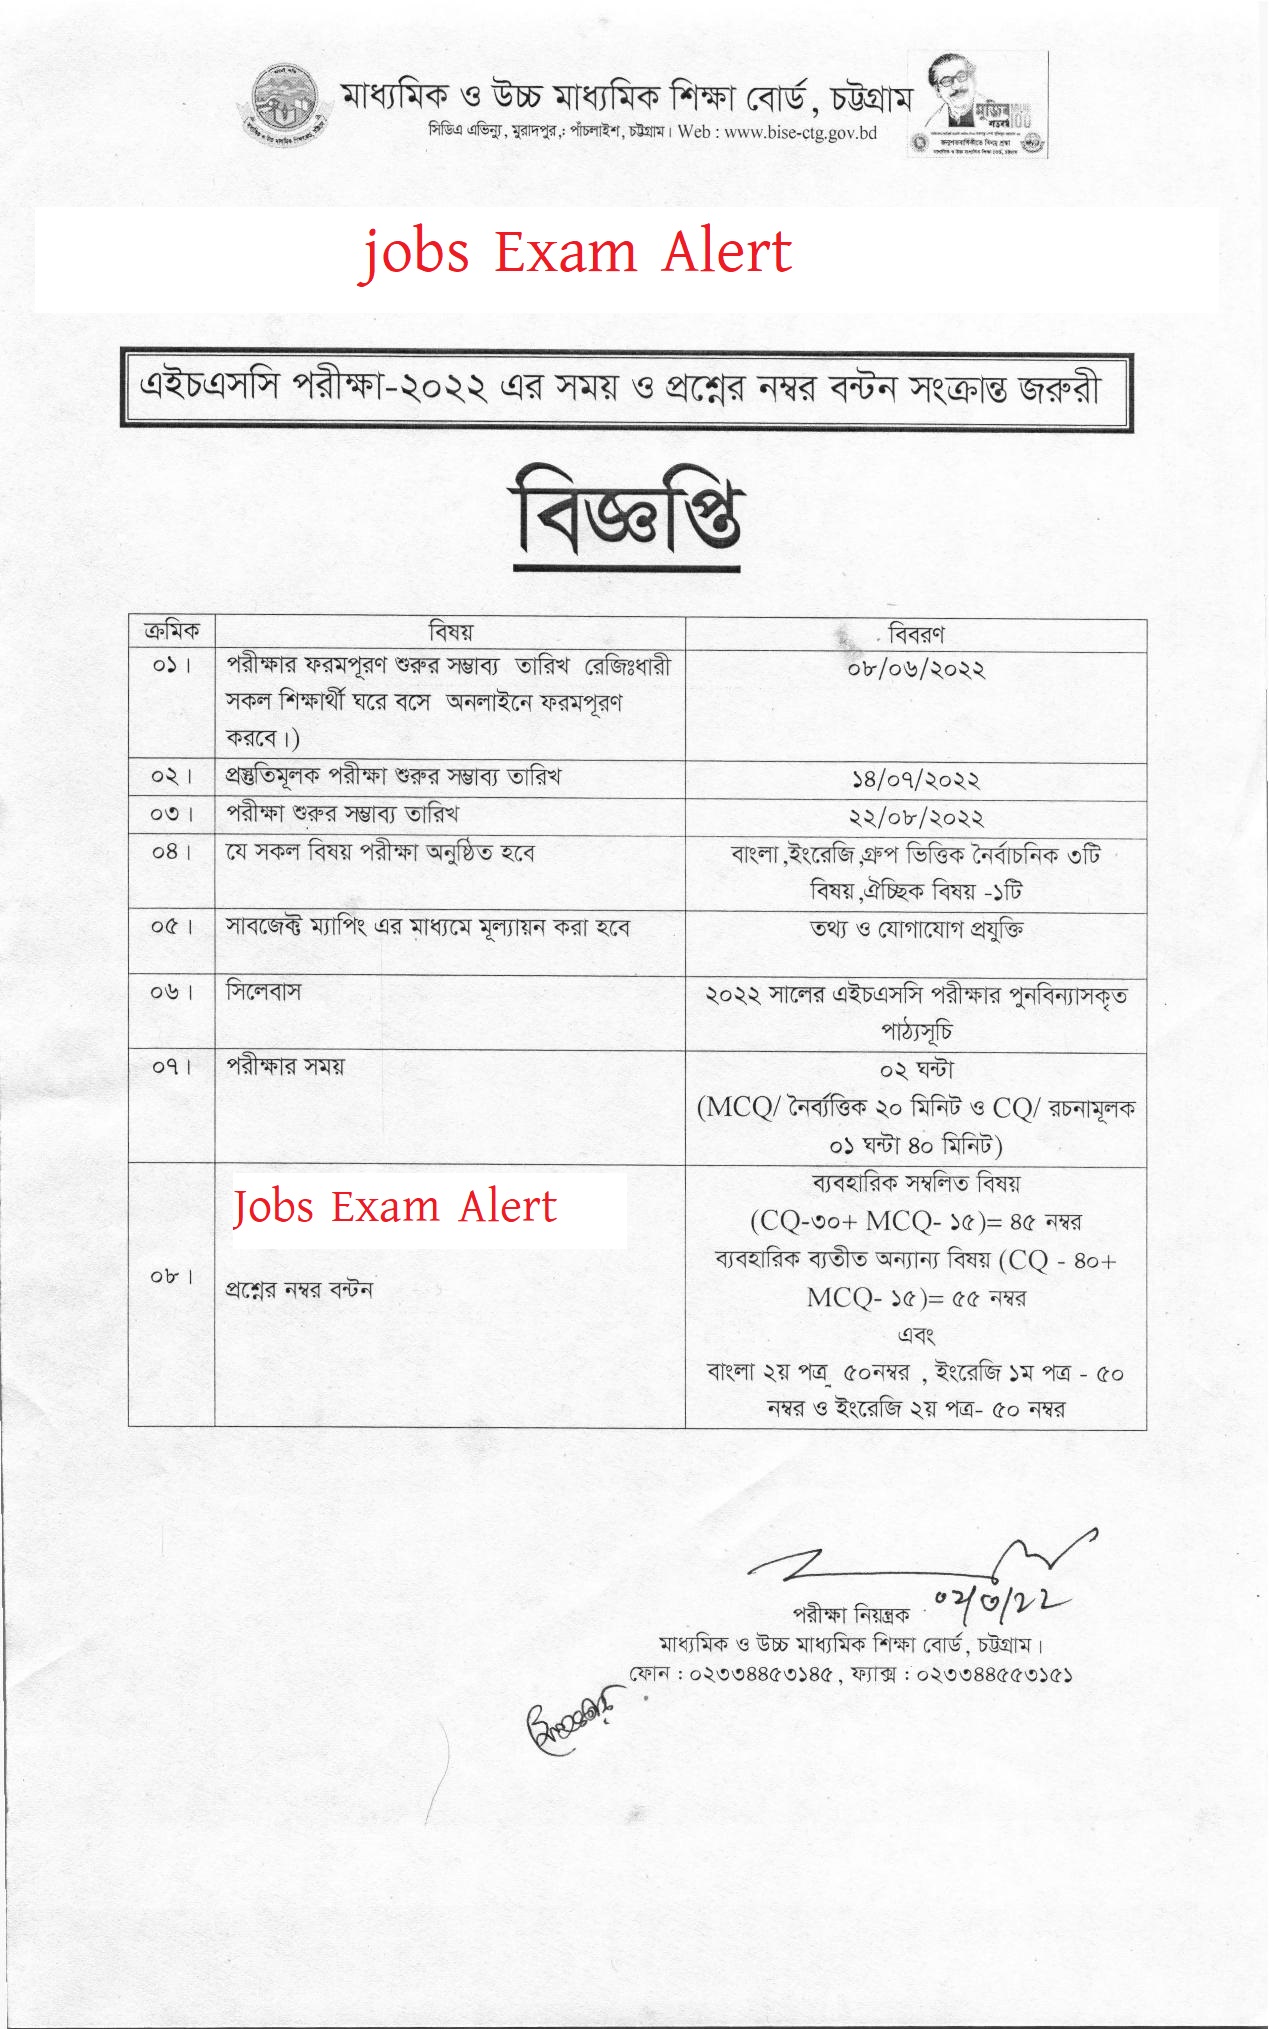 মাধ্যমিক ও উচ্চ মাধ্যমিক শিক্ষা বোর্ড, চট্টগ্রাম
সিডিএ এভিন্যু, মুরাদপুর,ঃ পাঁচলাইশ, চট্টগ্রাম। Web : www.bise-ctg.gov.bd
মুজিব শতবর্ষ 100
jobs Exam Alert
এইচএসসি পরীক্ষা-২০২২ এর সময় ও প্রশ্নের নম্বর বন্টন সংক্রান্ত জরুরী
বিজ্ঞপ্তি
ক্রমিক বিষয় বিবরণ
০১। পরীক্ষার ফরমপূরণ শুরুর সম্ভাব্য তারিখ রেজিঃধারী ০৮/০৬/২০২২
সকল শিক্ষার্থী ঘরে বসে অনলাইনে ফরমপূরণ
করবে।)
০২। প্রস্তুতিমূলক পরীক্ষা শুরুর সম্ভাব্য তারিখ ১৪/০৭/২০২২
০৩। পরীক্ষা শুরুর সম্ভাব্য তারিখ ২২/০৮/২০২২
০৪। যে সকল বিষয় পরীক্ষা অনুষ্ঠিত হবে বাংলা,ইংরেজি,গ্রুপ ভিত্তিক নৈর্বাচনিক ৩টি
বিষয়,ঐচ্ছিক বিষয় -১টি
০৫। সাবজেক্ট ম্যাপিং এর মাধ্যমে মূল্যায়ন করা হবে তথ্য ও যোগাযোগ প্রযুক্তি
০৬। সিলেবাস ২০২২ সালের এইচএসসি পরীক্ষার পুনবিন্যাসকৃত
পাঠ্যসূচি
০৭। পরীক্ষার সময় ০২ ঘন্টা
(MCQ/ নৈর্ব্যত্তিক ২০ মিনিট ও CQ/ রচনামূলক
০১ ঘন্টা ৪০ মিনিট)
Jobs Exam Alert
০৮। প্রশ্নের নম্বর বন্টন
ব্যবহারিক সম্বলিত বিষয়
(CQ-৩০+ MCQ- ১৫)= ৪৫ নম্বর
ব্যবহারিক ব্যতীত অন্যান্য বিষয় (CQ - ৪০+
MCQ- ১৫)= ৫৫ নম্বর
এবং
বাংলা ২য় পত্র ৫০নম্বর , ইংরেজি ১ম পত্র - ৫০
নম্বর ও ইংরেজি ২য় পত্র- ৫০ নম্বর
০২/৩/২২
পরীক্ষা নিয়ন্ত্রক
মাধ্যমিক ও উচ্চ মাধ্যমিক শিক্ষা বোর্ড, চট্টগ্রাম।
ফোন : ০২৩৩৪৪৫৩১৪৫, ফ্যাক্স : ০২৩৩৪৪৫৫৩১৫১